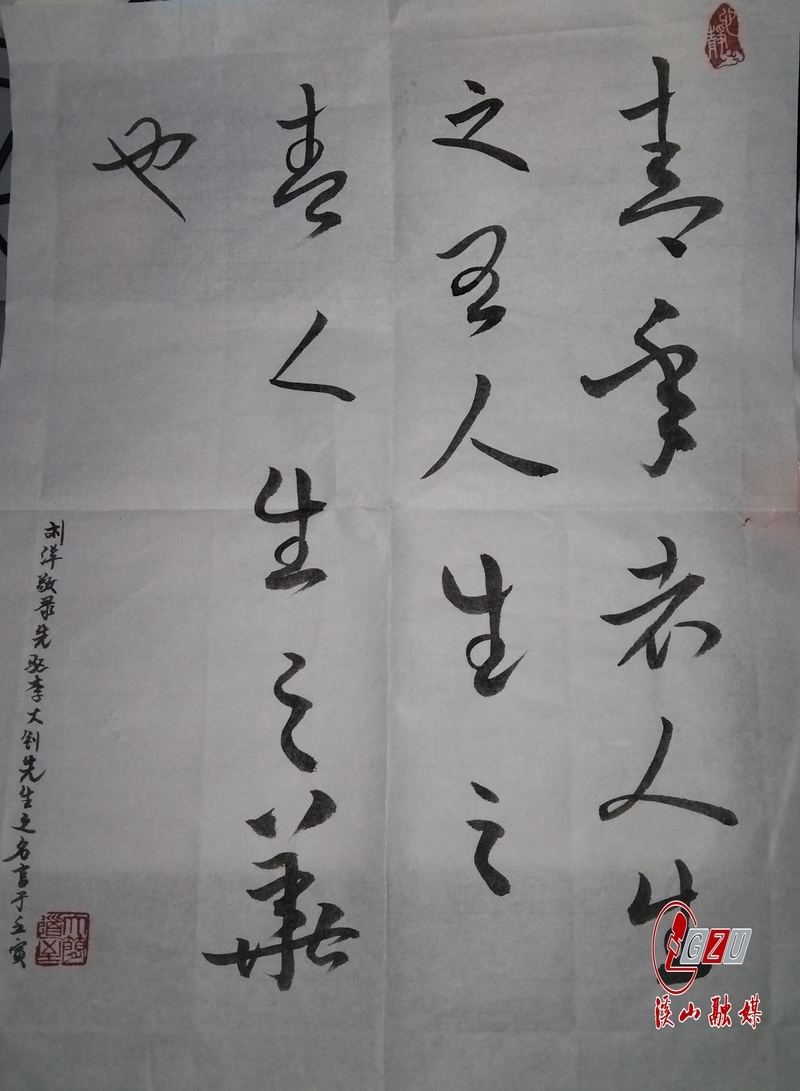 青年者人生
之王人生之
春人生之華
也
刘洋敬录先驱李大钊先生之名言于壬寅
大道至簡
GZU
溪山融媒